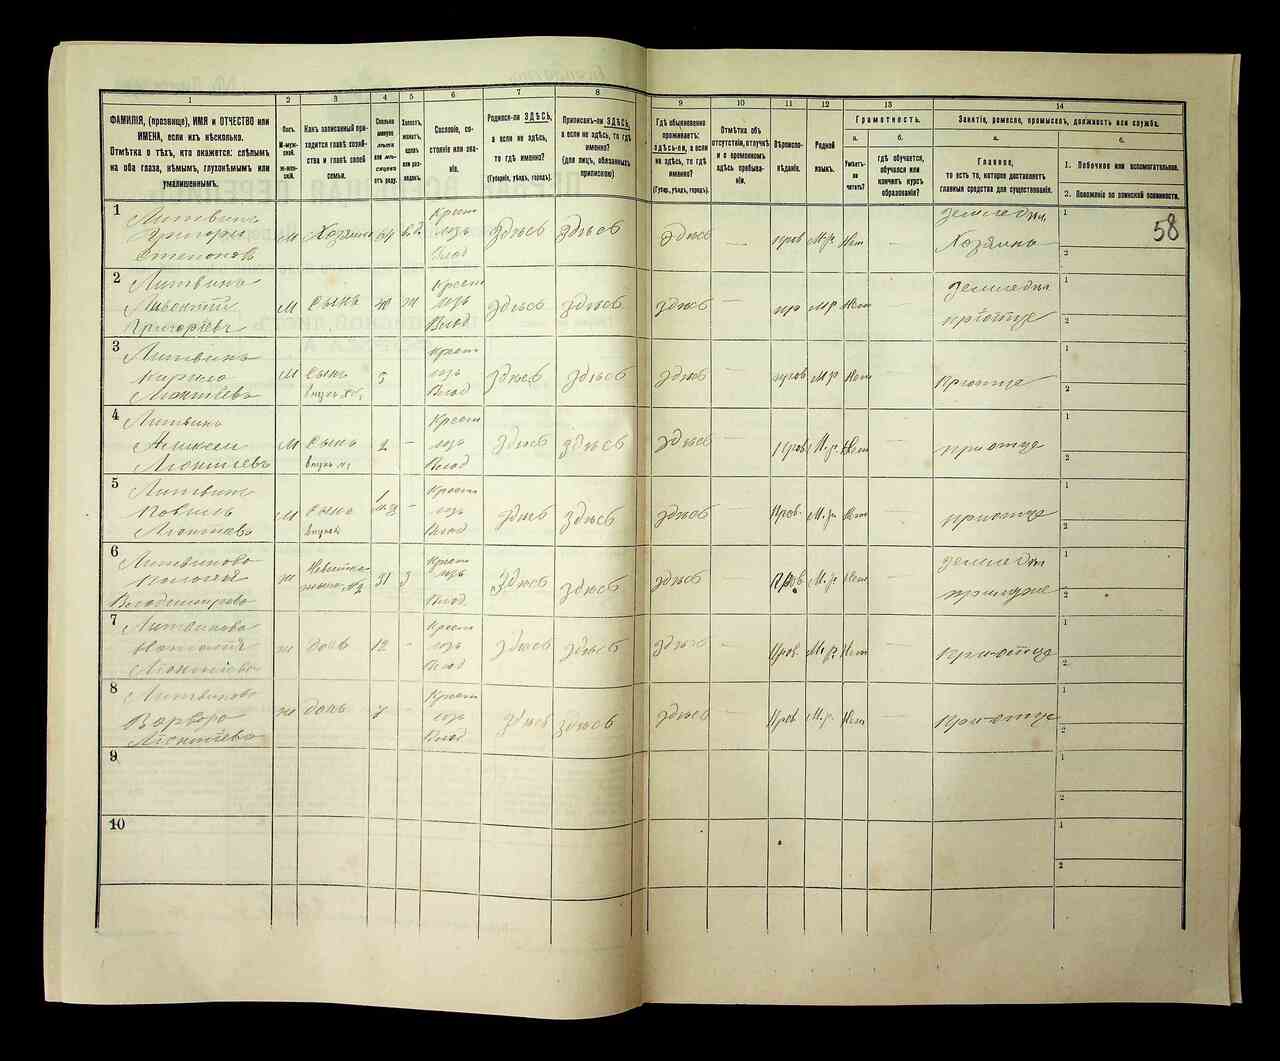 1 2 3 4 5 6 7 8 9 10 11 12 13 14
ФАМИЛІЯ, (прозвище), ИМЯ и ОТЧЕСТВО или
ИМЕНА, если ихъ нѣсколько.
Отмѣтка о тѣхъ, кто окажется: слѣпымъ
на оба глаза, нѣмымъ, глухонѣмымъ или
умалишеннымъ.
Полъ.
М-мужской.
Ж-женскій.
Какъ записанный при-
ходится главѣ хозяй-
ства и главѣ своей
семьи.
Сколько
минуло
лѣтъ
или мѣ-
сяцевъ
отъ роду.
Холостъ,
женатъ,
вдовъ
или раз-
веденъ.
Сословіе, со-
стояніе или зва-
ніе.
Родился-ли ЗДѢСЬ,
а если не здѣсь,
то гдѣ именно?
(Губернія, уѣздъ, городъ).
Приписанъ-ли ЗДѢСЬ,
а если не здѣсь, то гдѣ
именно?
(для лицъ, обязанныхъ
припискою)
Гдѣ обыкновенно
проживаетъ:
здѣсь-ли, а если
не здѣсь, то гдѣ
именно?
(Губер., уѣздъ, городъ).
Отмѣтка объ
отсутствіи, отлучкѣ
и о временномъ
здѣсь пребыва-
ніи.
Вѣроиспо-
вѣданіе.
Родной
языкъ.
Грамотность.
а.
Умѣетъ-
ли
чи-
тать?
б.
гдѣ обучается,
обучался или
кончилъ курсъ
образованія?
Занятіе, ремесло, промыселъ, должность или служба.
а.
Главное,
то есть то, которое доставляетъ
главныя средства для существованія.
б.
1. Побочное или вспомогательное.
2. Положеніе по воинской повинности.
58
1
Литвинъ
Григори
Степоновъ
М Хозяинъ 64
Крест
Влад
здѣсь здѣсь здѣсь — прав М.р. Нет —
Земледѣл
Хозяинъ
1
2
2
Литвинъ
Григоріевъ
М Сынъ ж
Крест
Влад
здѣсь здѣсь здѣсь — пр МР Нет —
Земледѣл
1
2
3
Литвинъ
Кирило
Леонтіевъ
М Сынъ 5
внукъ
Крест
Влад
здѣсь здѣсь здѣсь — прав М.р Нет —
при отце
1
2
4
Литвинъ
Алексей
Леонтіевъ
М Сынъ 2 —
внукъ
Крест
Влад
здѣсь здѣсь здѣсь — Прав М.р. Нет —
при отце
1
2
5
Литвинъ
Леонтіевъ
М Сынъ —
внукъ
Крест
Влад
здѣсь здѣсь здѣсь — Прав. М.р. Нет —
при отце
1
2
6
Литвинова
Владимирова
ж Невѣстка 31 З
Крест
Влад
здѣсь здѣсь здѣсь — Прав М.р. Нет —
Земледѣл
при муже
1
2
7
Литвинова
Наталія
Леонтіева
ж дочь 12 —
Крест
Влад
здѣсь здѣсь здѣсь — Прав. М.р. Нет —
при отце
1
2
8
Литвинова
Варвара
Леонтіева
ж дочь —
Крест
Влад
здѣсь здѣсь здѣсь — Прав М.р. Нет —
при отце
1
2
9
1
2
10
1
2